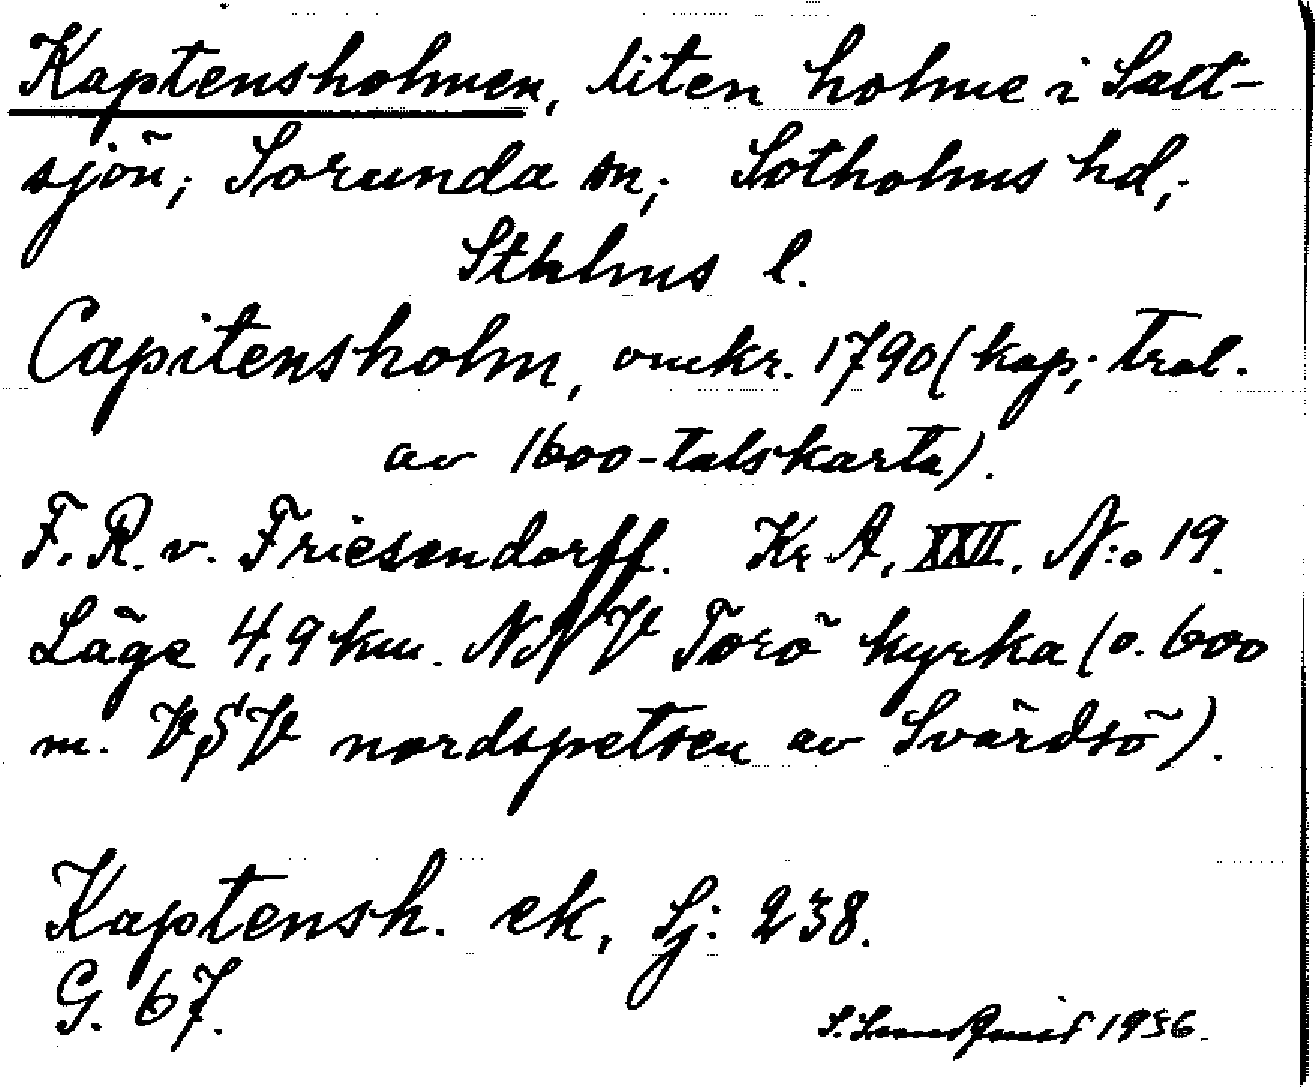 Kaptensholmen, liten holme i Salt-
sjön; Sorunda sn; Sotholms hd,;
Sthlms l.
Capitensholm, omkr. 1790 (kap; trol.
av 1600-talskarta).
F. R. v. Friesendorff. Kr A, XXII. N:o 19.
Läge 4,9 km. NNV Torö kyrka (o. 600
m. VSV nordspetsen av Svärdsö).
Kaptensh. ek, Sj: 238.
G. 67.
S. Sundqvist 1936.